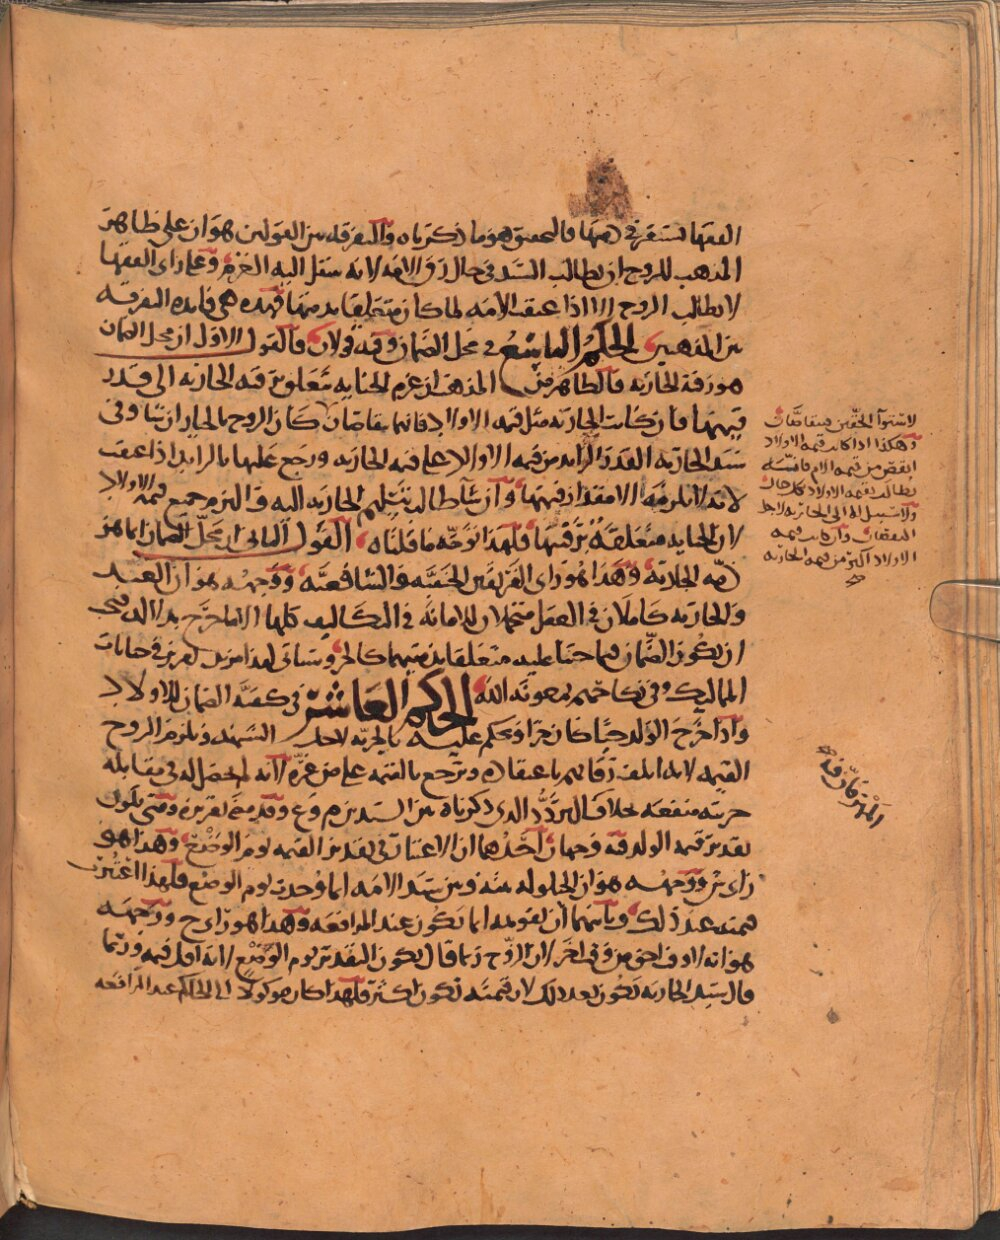 الفقها تستقر في ذمتها فالتحقيق هو ما ذكرناه والتفرقة بين القولين هو ان على ظاهر
المذهب للزوج ان يطالب السيد في حال رق الامه لانه ينتقل اليه الغرم وعلى راى الفقها
لا يطالب الزوج الا اذا عتقت الامه لما كان متعلقا بذمتها فهذه هي فايده التفرقه
بين المذهبين الحكم التاسع في محل الضمان وفيه قولان فالقول الاول ان محل الضمان
هو رقبة الجاريه فالظاهر من المذهب ان غرم الجنايه يتعلق برقبة الجاريه الى قدر
قيمتها فان كانت الجاريه مثل قيمه الاولاد فانهما يتقاصان كان الزوج بالخيار ان شا وفى
سيد الجاريه القدر الزايد من قيمه الاولاد على قيمه الجاريه ورجع عليها بالزايد اذا عتقت
لانه لا يلزمه الا مقدار قيمتها وان شا طالب بتسليم الجاريه اليه والتزم جميع قيمه الاولاد
لان الجنايه متعلقة برقبتها فلهذا توجه ما قلناه القول الثاني ان محل الضمان انما هو
ذمه الجاريه وهذا هو راى الفريقين الحنفيه والشافعيه ووجهه هو ان العبد
والجاريه كاملان في العقل متحملان للامانه في التكاليف كلها الا ما خرج بدلاله فيجب
ان يكون الضمان فيما جنيا عليه متعلقا بذمتهما كالحر وسياتي لهذا مزيد تقرير في جنايات
المماليك وفي نكاحهم بمعونه الله الحكم العاشر في كيفية الضمان للاولاد
واذا خرج الولد حيا كان حرا وحكم عليه بالحريه لاجل الشبهه ويلزم الزوج
القيمه لانه اتلف رقابهم باعتقاده ويرجع بالقيمه على من غره لانه لم يحصل له في مقابله
حريته منفعه بخلاف التردد الذي ذكرناه بين السيدين م وع وقد مضى تقريره ومتى يكون
تقدير قيمه الولد فيه وجهان احدهما ان الاعتبار في تقدير القيمه يوم الوضع وهذا هو
راى ش ووجهه هو ان الحلوله بينه وبين سيد الامه انما وجدت يوم الوضع فلهذا اعتبرت
قيمته عند ذلك وثانيهما ان تقويمه انما يكون عند المرافعه وهذا هو راى ح ووجهه
هو انه اذ وافق من وقت اخر لان الزوج ربما قال يكون التقدير يوم الوضع لانه اقل قيمه وربما
قال سيد الجاريه يكون بعد ذلك لان قيمته تكون اكثر فلهذا كان موكولا الى الحاكم عند المرافعه
لاستوآ الحقين فيتقاصان
وهكذا اذا كانت قيمه الاولاد
انقص من قيمه الام فانسيده
يطالب بقيمه الاولاد بكل حال
ولا سبيل له الى الجاريه لاجل
النقصان وان كانت قيمه
الاولاد اكثر من قيمه الجاريه